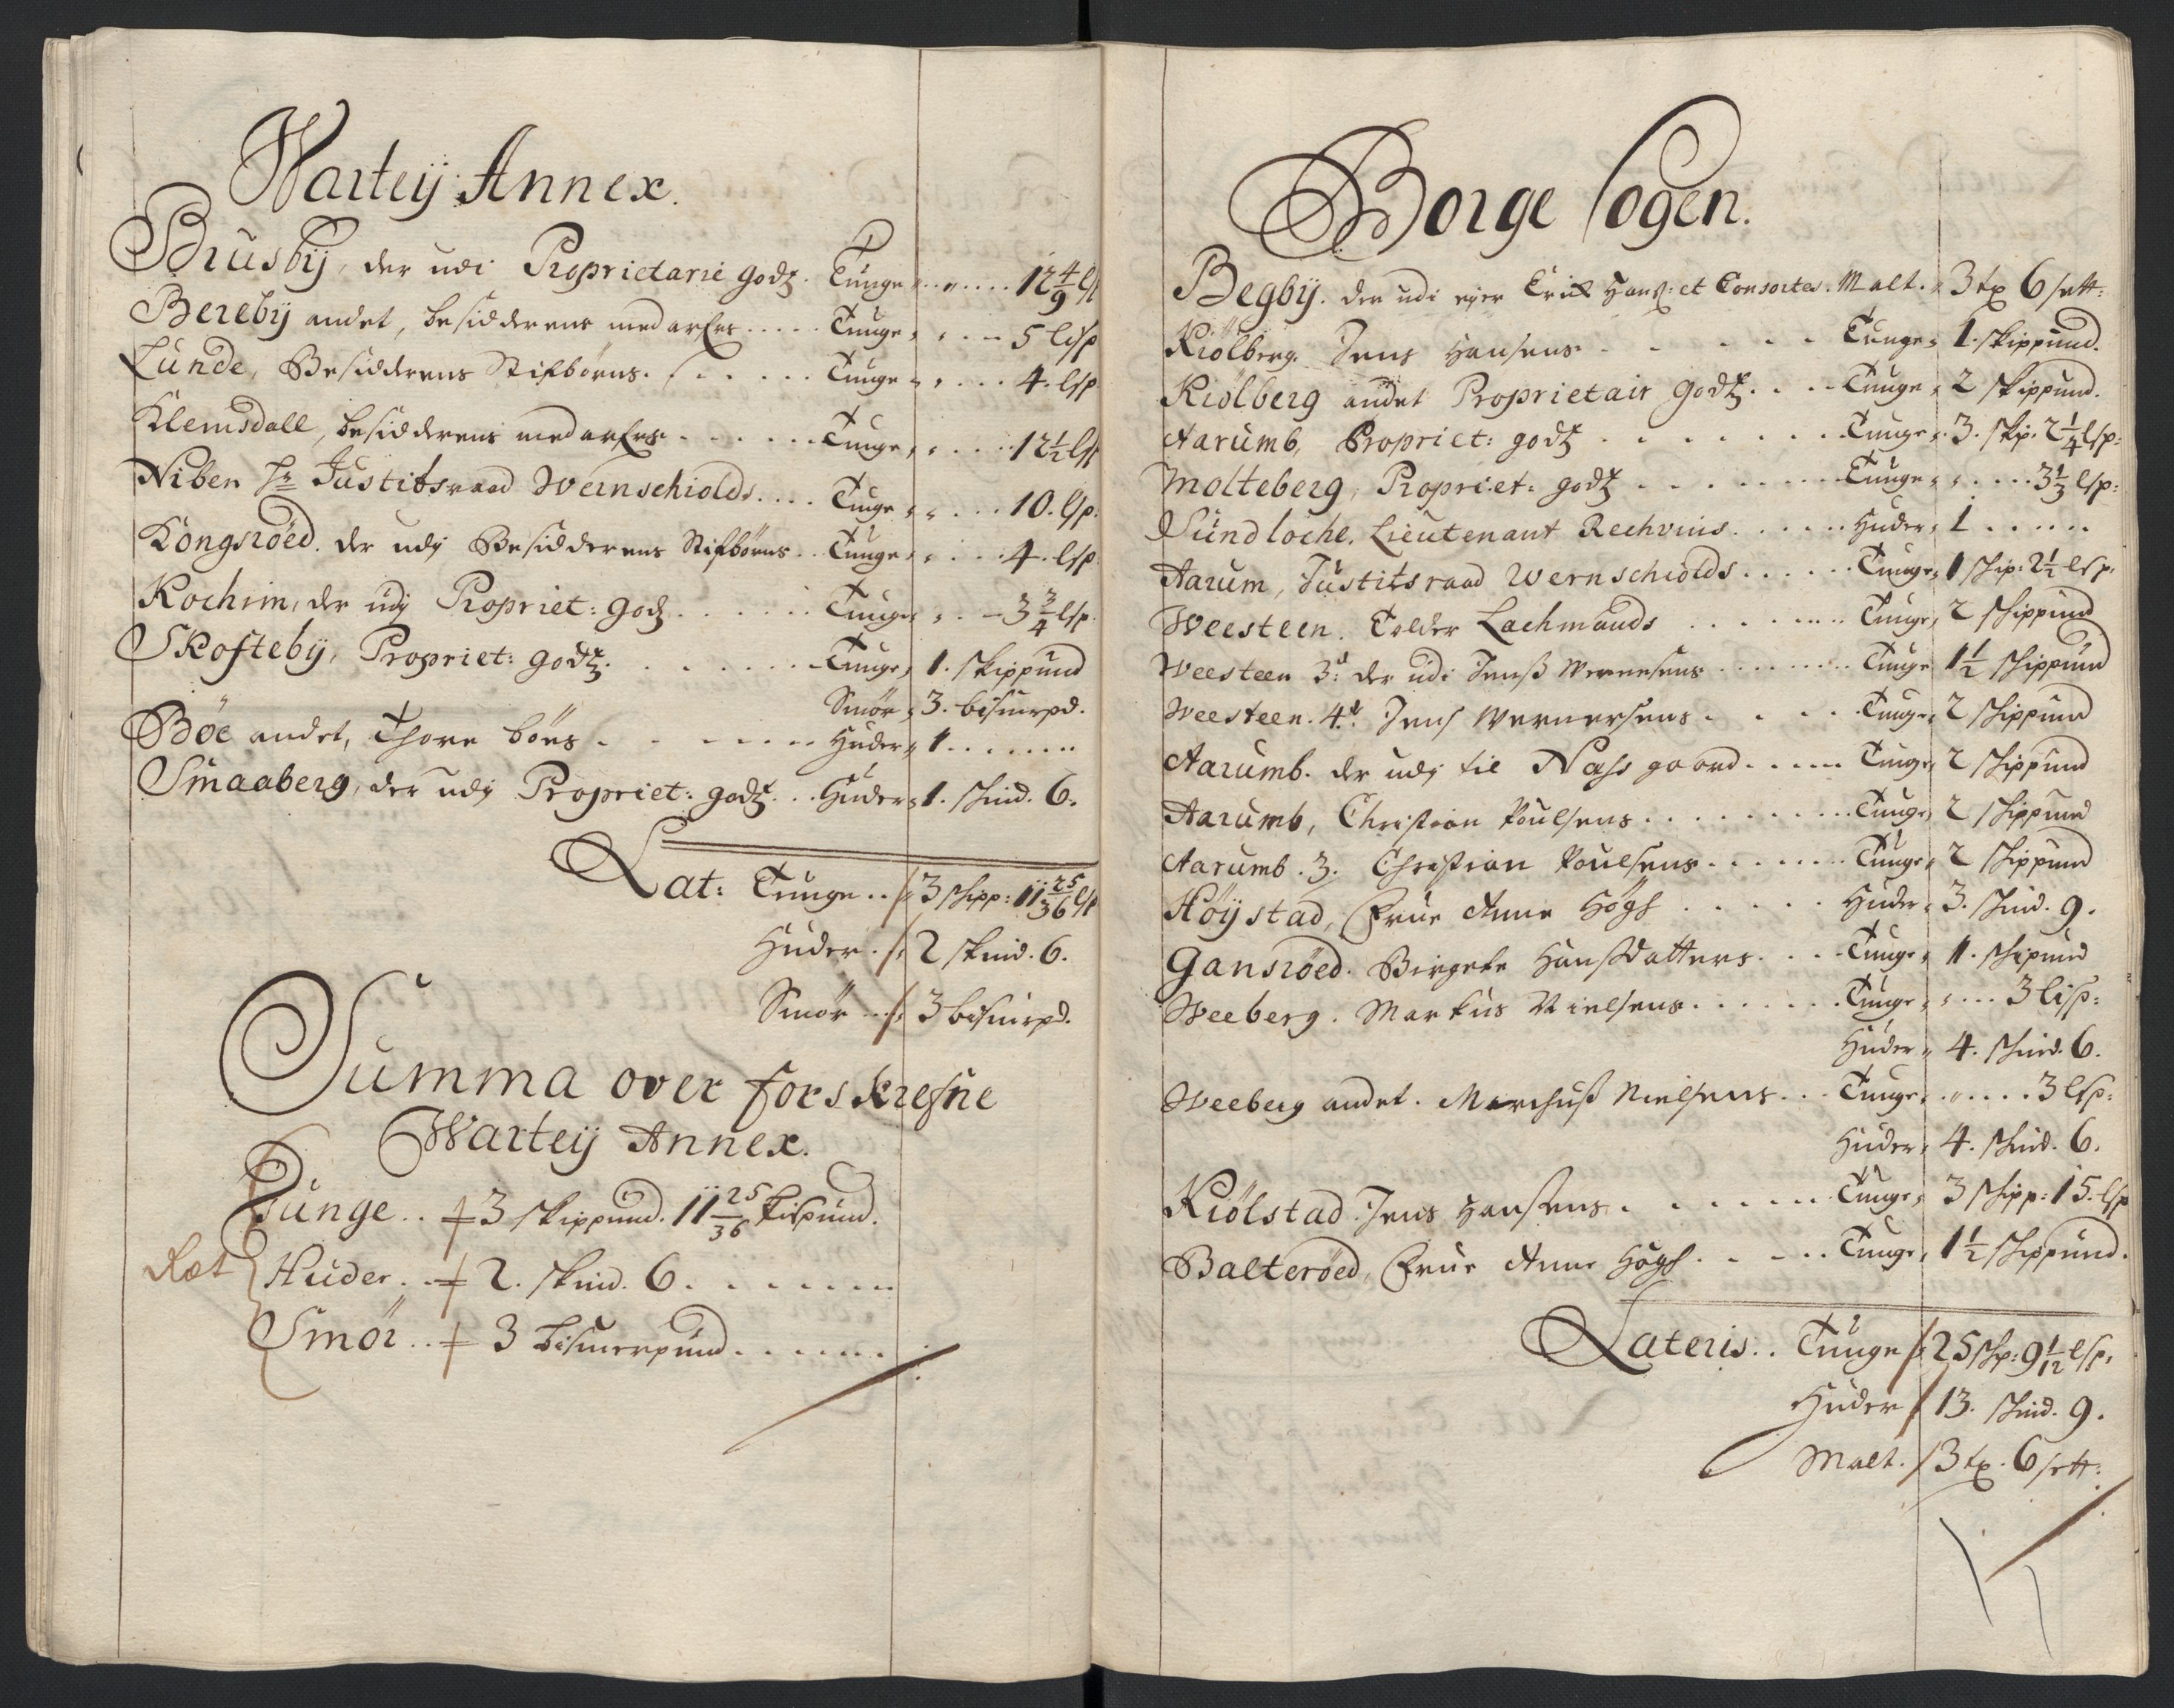 Wartey Annex.
Brusby, der udi Proprietarie godtz. Tunge „ „ .... 12 4/9 lß
Bereby andet, besidderens medarfes ..... Tunge „ . . – 5 lisp
Lunde, Besidderens Stifbørns. ...... Tunge „ , .... 4. lsp
Klemsdall, besidderens medarfes ...... Tunge „ . .... 12 1/2 lß
Niben Hr Justitsraad Wernschiolds .... Tunge „ „ .... 10. lsp.
Kongsröed. der udj Besidderens Stifbørns .. Tunge „ . .... 4. lsp.
Kochim, der udj Propriet: godz. ..... Tunge „ . . – 3 3/4 lsp.
Skofteby, Propriet: godtz. ....... Tunge „ 1. skippund
Smör „ 3. bismerpd.
Böe andet, Thore böes . . ..... Huder „ 1 .......
Smaaberg, der udj Propriet: godtz. .. Huder „ 1. skind. 6.
Lat: Tunge .. „ 3 skipp: 11 25/36 lß
Huder . „ 2 skind. 6.
Smör ... „ 3 bismerpd.
Summa over forskrefne
Wartey Annex.
Tunge .. 3 skippund. 11 25/36 Lispund.
Ræt
Huder. .. 2. skind. 6. .......
Smör .. 3 bismerpund ......
Borge Sogen.
Begby. der udi ejer Erich Hans: et Consortes. Malt. „ 3 tp 6 sett:
Kiölberg. Jens Hansens . . . . . Tunge „ 1. skippund.
Kiölberg andet Proprietair godtz. ... Tunge „ 2 skippund.
Aarumb, Propriet: godtz ....... Tunge „ 3. skp. 2 1/4 lsp:
Molteberg, Propriet: godtz ....... Tunge „ „ .... 3 1/3 lsp:
Sundloche, Lieutenant Rechvins ...... Huder „ 1 .....
Aarum, Justitsraad Wernschiolds ...... Tunge „ 1 skip: 2 1/2 lsp.
Weesteen. Tolder Lachmands ....... Tunge „ 2 skippund
Weesteen 3: der udi Jenß Wernesens ........ Tunge 1 1/2 skippund
Weesteen. 4de Jens Wernersens . . . .. Tunge „ 2 skippund
Aarumb. der udj til Næss gaard ..... Tunge „ 2 skippund
Aarumb, Christian Poulsens ......... Tunge „ 2 skippund
Aarumb. 3. Christian Poulsens ....... Tunge „ 2 skippund
Höystad, Frue Anne Högh . . . . . Huder „ 3. skind. 9.
Gansröed. Birgete Hanßdatters . ... Tunge „ 1. skipund
Weeberg. Markus Nielsens ...... Tunge „ „ ... 3 lisp:
Huder „ 4. skind. 6.
Weeberg andet. Marchuß Nielsens ... Tunge „ „ .... 3 lsp:
Huder „ 4. skind. 6.
Kiölstad. Jens Hansens ....... Tunge „ 3 skipp: 15. lsp
Balteröed, Frue Anne Högh . . – .. Tunge „ 1 1/2 skippund.
Lateris .. Tunge „ 25 skp: 9 1/12 lsp.
Huder „ 13. skind. 9.
Malt. „ 3 tp. 6 sett: